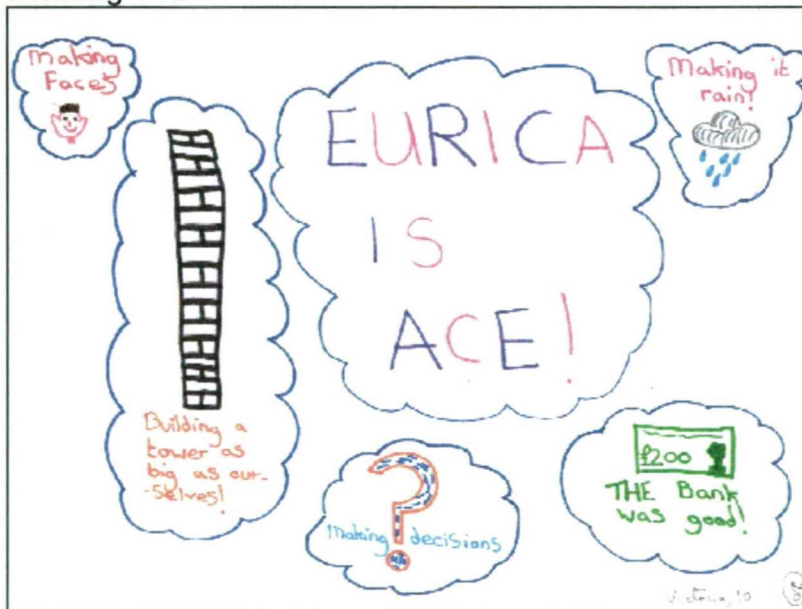 Making
Faces
Making it
rain!
EURICA
IS
ACE!
Building a
tower as
big as our-
-selves!
Making decisions
£200
THE Bank
was good!